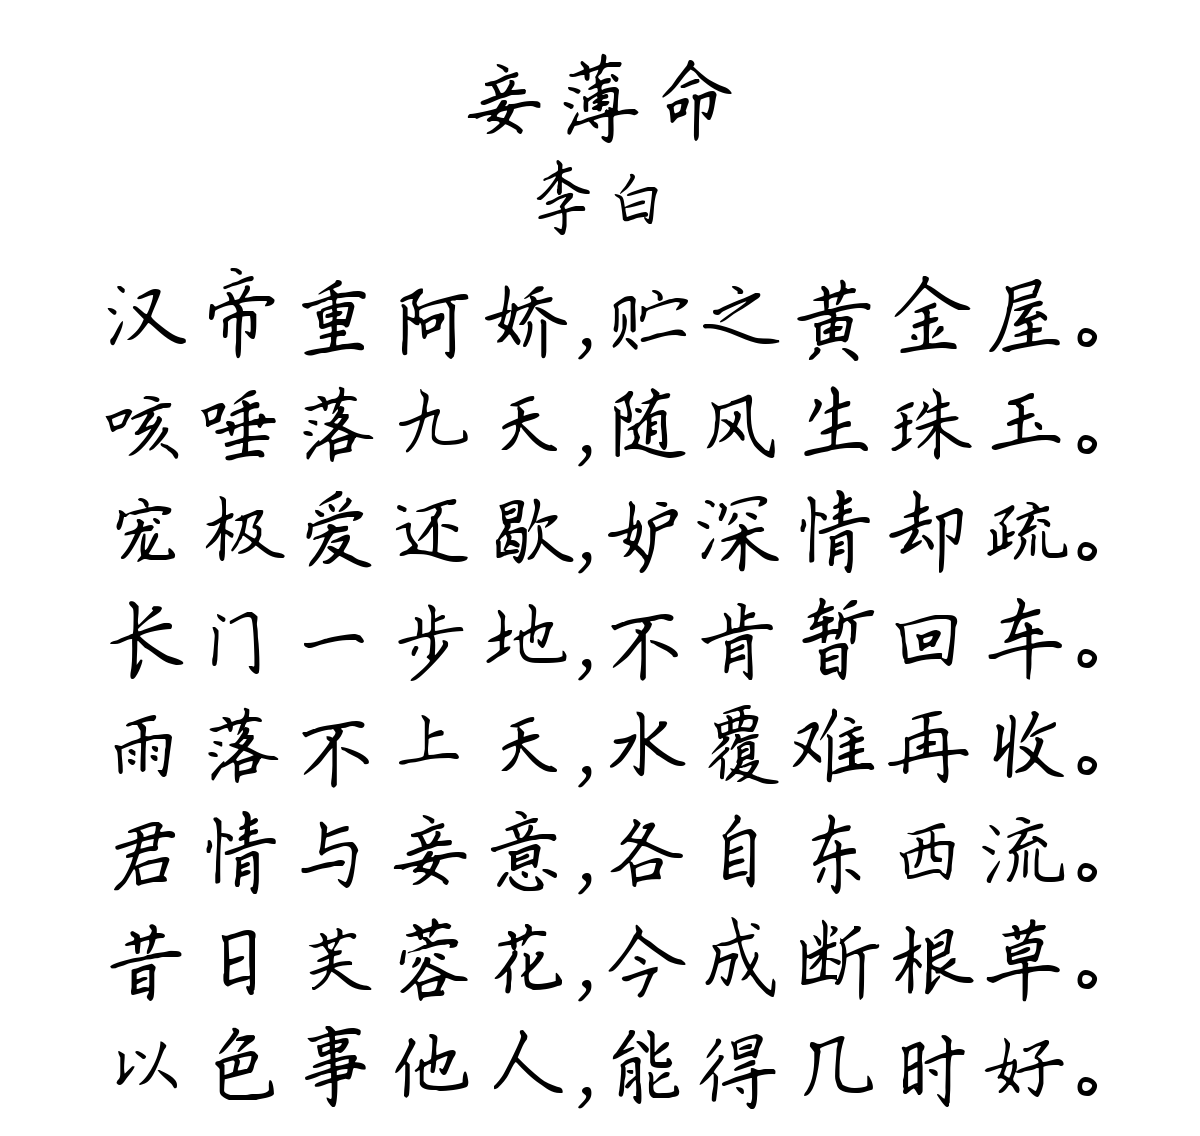 妾薄命
李白
汉帝重阿娇,贮之黄金屋。
咳唾落九天,随风生珠玉。
宠极爱还歇,妒深情却疏。
长门一步地,不肯暂回车。
雨落不上天,水覆难再收。
君情与妾意,各自东西流。
昔日芙蓉花,今成断根草。
以色事他人,能得几时好。